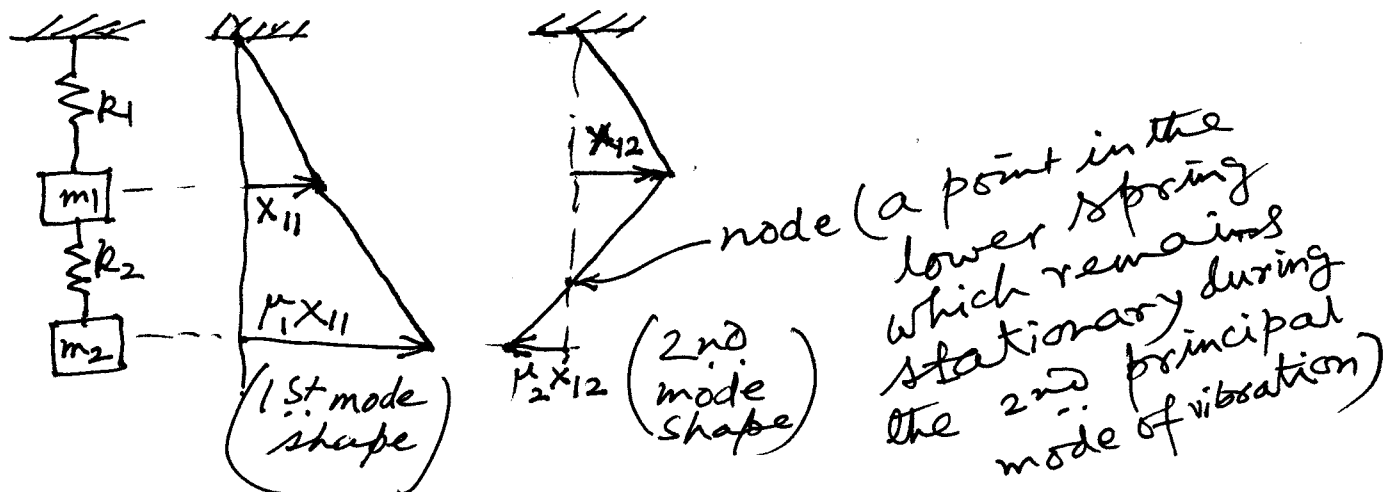 k1
m1
k2
m2
x11
μ1x11
(1st mode
shape)
x12
μ2x12
(2nd
mode
shape)
node (a point in the
lower spring
which remains
stationary during
the 2nd principal
mode of vibration)